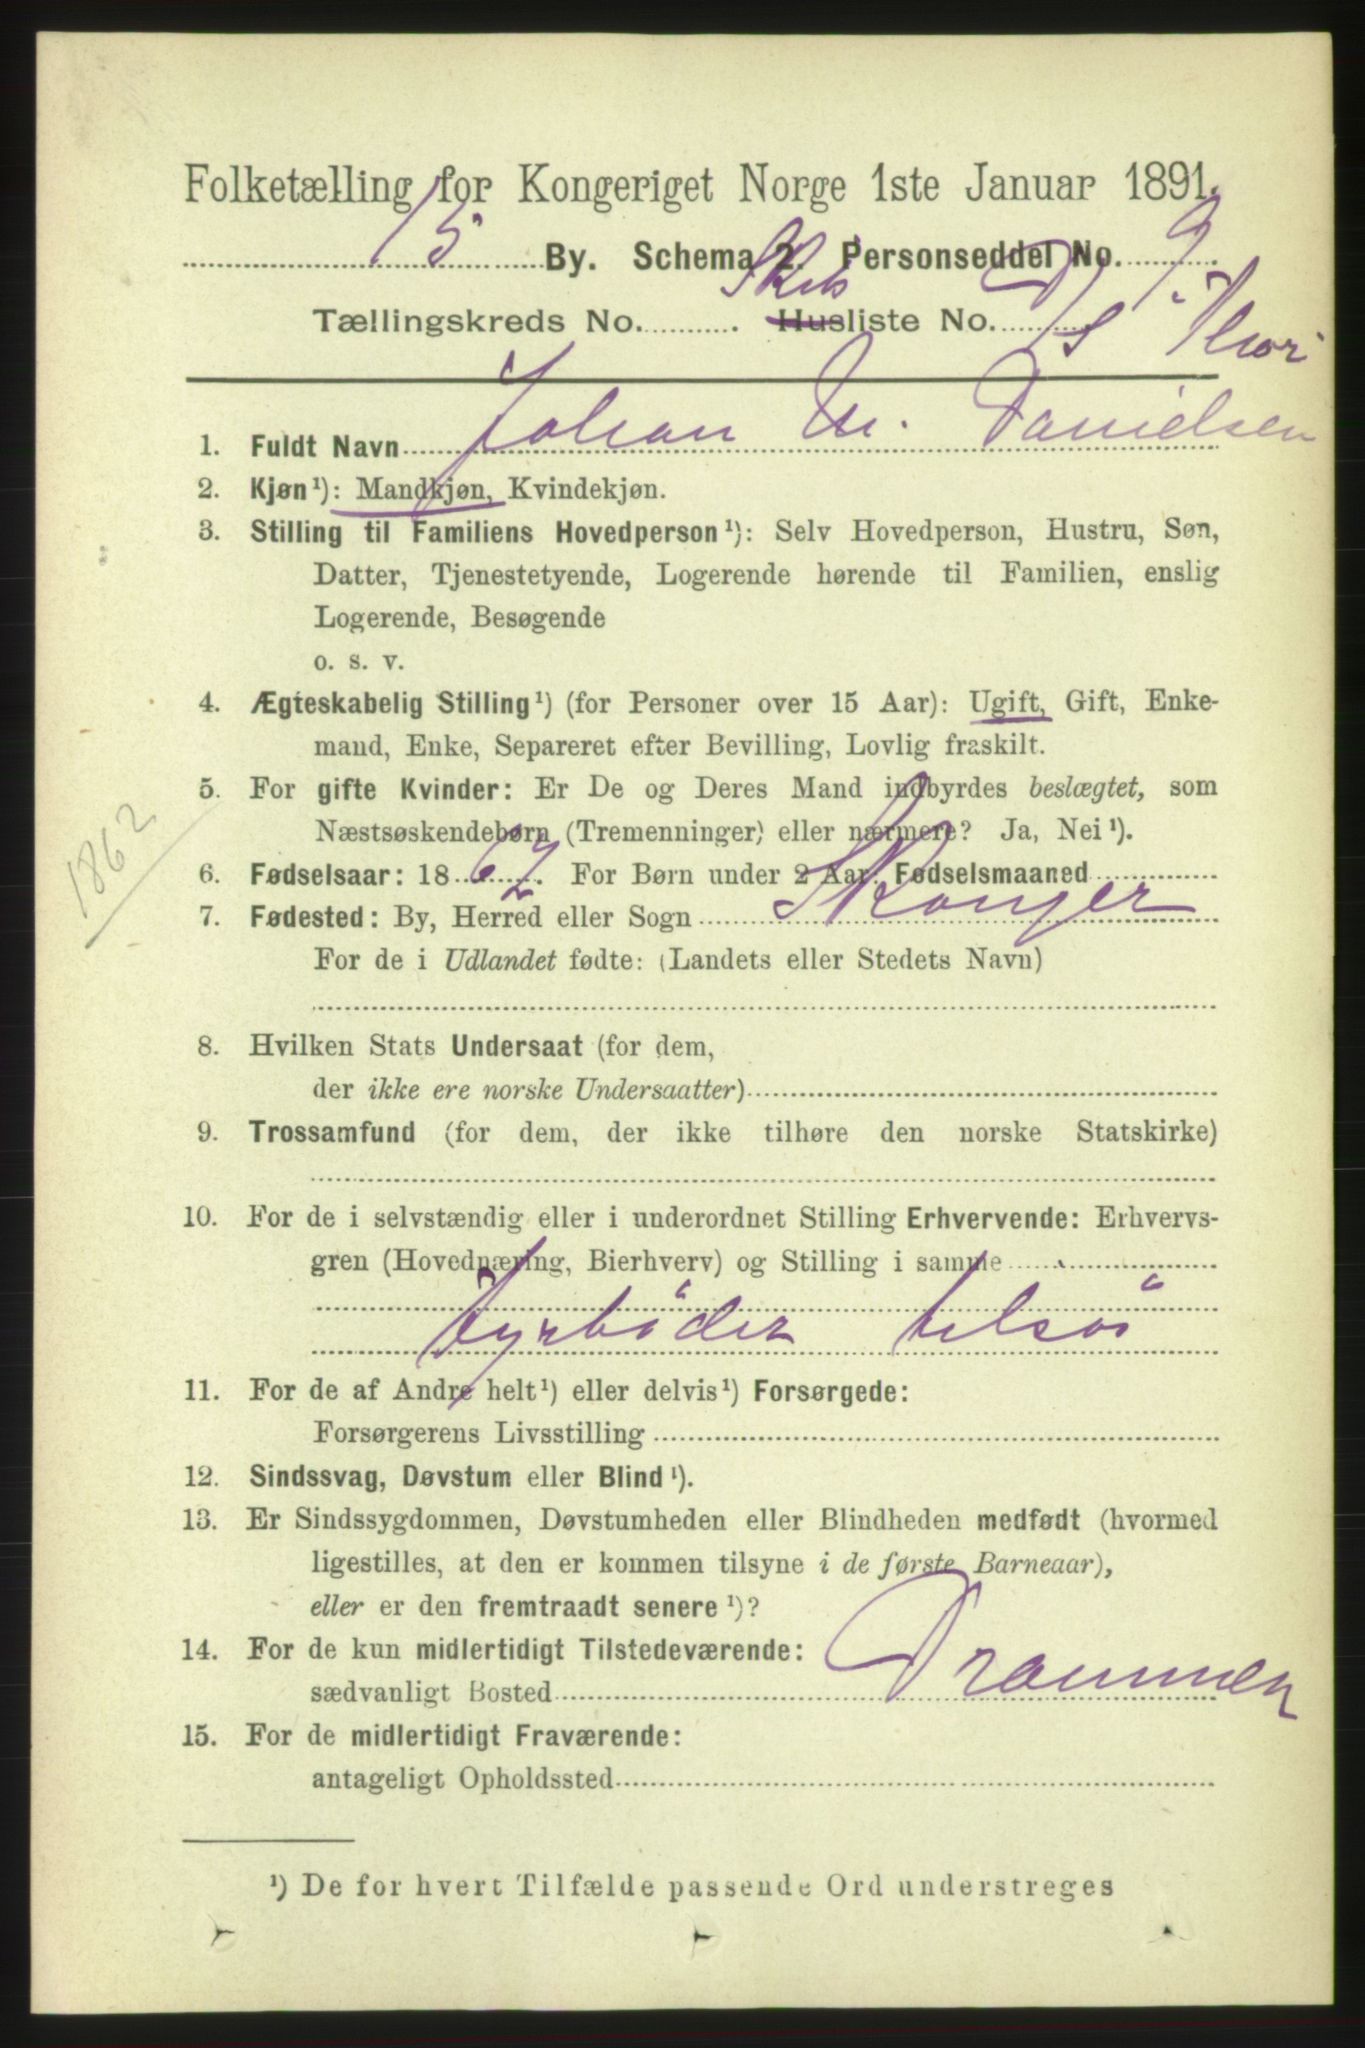 Folketælling for Kongeriget Norge 1ste Januar 1891.
15 By. Schema 2. Personseddel No. 9
Skibs
Tællingskreds No. Husliste No. D/S "Thor"
1. Fuldt Navn Johan M. Danielsen
2. Kjøn¹): Mandkjøn, Kvindekjøn.
3. Stilling til Familiens Hovedperson¹): Selv Hovedperson, Hustru, Søn,
Datter, Tjenestetyende, Logerende hørende til Familien, enslig
Logerende, Besøgende
o. s. v.
4. Ægteskabelig Stilling¹) (for Personer over 15 Aar): Ugift, Gift, Enke-
mand, Enke, Separeret efter Bevilling, Lovlig fraskilt.
5. For gifte Kvinder: Er De og Deres Mand indbyrdes beslægtet, som
Næstsøskendebørn (Tremenninger) eller nærmere? Ja, Nei¹).
1862
6. Fødselsaar: 1862. For Børn under 2 Aar: Fødselsmaaned
7. Fødested: By, Herred eller Sogn Skouger
For de i Udlandet fødte: (Landets eller Stedets Navn)
8. Hvilken Stats Undersaat (for dem,
der ikke ere norske Undersaatter)
9. Trossamfund (for dem, der ikke tilhøre den norske Statskirke)
10. For de i selvstændig eller i underordnet Stilling Erhvervende: Erhvervs-
gren (Hovednæring, Bierhverv) og Stilling i samme
Fyrböder tilsös
11. For de af Andre helt¹) eller delvis¹) Forsørgede:
Forsørgerens Livsstilling
12. Sindssvag, Døvstum eller Blind¹).
13. Er Sindssygdommen, Døvstumheden eller Blindheden medfødt (hvormed
ligestilles, at den er kommen tilsyne i de første Barneaar),
eller er den fremtraadt senere¹)?
14. For de kun midlertidigt Tilstedeværende:
sædvanligt Bosted Drammen
15. For de midlertidigt Fraværende:
antageligt Opholdssted
¹) De for hvert Tilfælde passende Ord understreges